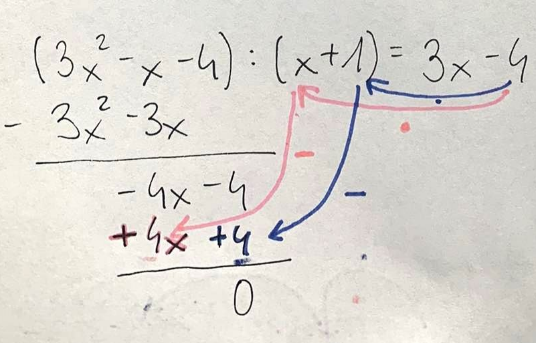 (3x² - x - 4) : (x + 1) = 3x - 4
- 3x² - 3x
- 4x - 4
+ 4x + 4
0